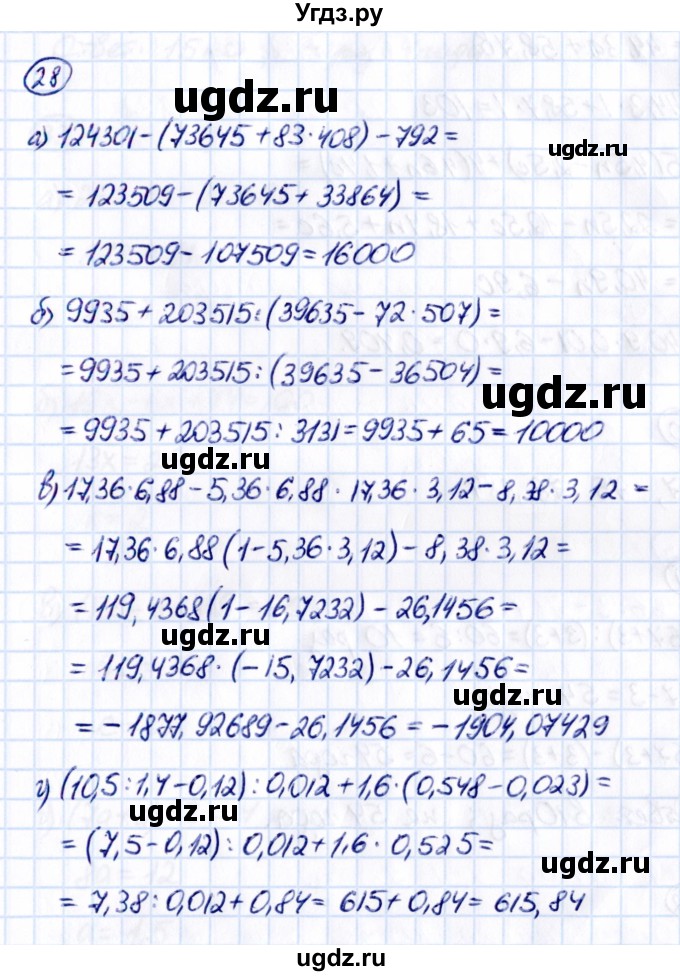 Угдз.ру
28
ugdz.ru
а) 124301-(73645+83·408)-792=
ugdz.ru
=123509-(73645+33864)=
=123509-107509=16000
ugdz.ru
б) 9935+203515:(39635-72·507)=
=9935+203515:(39635-36504)=
ugdz.ru
=9935+203515:3131=9935+65=10000
ugdz.ru
в) 17,36·6,88-5,36·6,88·17,36·3,12-8,38·3,12=
=17,36·6,88(1-5,36·3,12)-8,38·3,12=
=119,4368(1-16,7232)-26,1456=
ugdz.ru
=119,4368·(-15,7232)-26,1456=
ugdz.ru
=-1877,92689-26,1456=-1904,07429
г) (10,5:1,4-0,12):0,012+1,6·(0,548-0,023)=
ugdz.ru
=(7,5-0,12):0,012+1,6·0,525=
ugdz.ru
=7,38:0,012+0,84=615+0,84=615,84
ugdz.ru